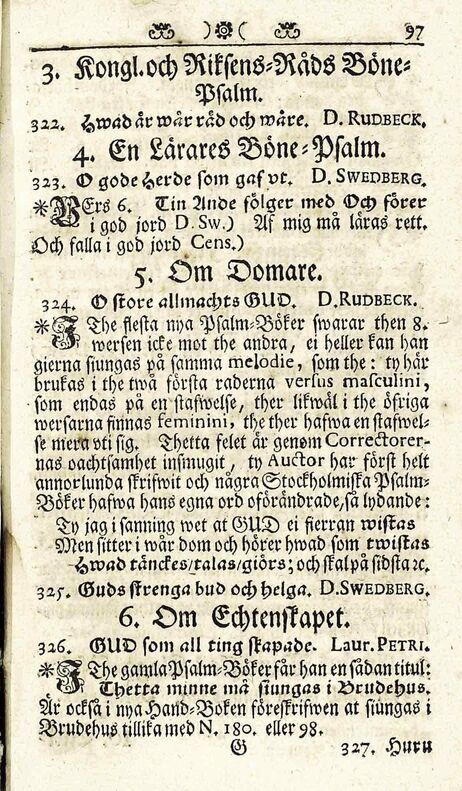 )( 97
3. Kongl. och Riksens-Råds Böne-
Psalm.
322. Hwad är wår råd och wäre. D. RUDBECK.
4. En Lärares Böne-Psalm.
323. O gode Herde som gaf vt. D. SWEDBERG.
* VErs 6. Tin Ande fölger med Och förer
i god jord D. Sw.) Af mig må läras rett.
Och falla i god jord Cens.)
5. Om Domare.
324. O store allmachts GUD. D. RUDBECK.
* I The flesta nya Psalm-Böker swarar then 8.
wersen icke mot the andra, ei heller kan han
gierna siungas på samma melodie, som the: ty här
brukas i the twå första raderna versus masculini,
som endas på en stafwelse, ther likwäl i the öfriga
wersarna finnas feminini, the ther hafwa en stafwel-
se mera vti sig. Thetta felet är genom Correctorer-
nas oachtsamhet insmugit, ty Auctor har först helt
annorlunda skrifwit och några Stockholmiska Psalm-
Böker hafwa hans egna ord oförändrade, så lydande:
Ty jag i sanning wet at GUD ei fierran wistas
Men sitter i wår dom och hörer hwad som twistas
Hwad tänckes/talas/giörs; och skal på sidsta ꝛc.
325. Guds strenga bud och helga. D. SWEDBERG.
6. Om Echtenskapet.
326. GUD som all ting skapade. Laur. PETRI.
* I The gamla Psalm-Böker får han en sådan titul:
Thetta minne må siungas i Brudehus.
Är också i nya Hand-Boken föreskrifwen at siungas i
Brudehus tillika med N. 180. eller 98.
G 327. Huru